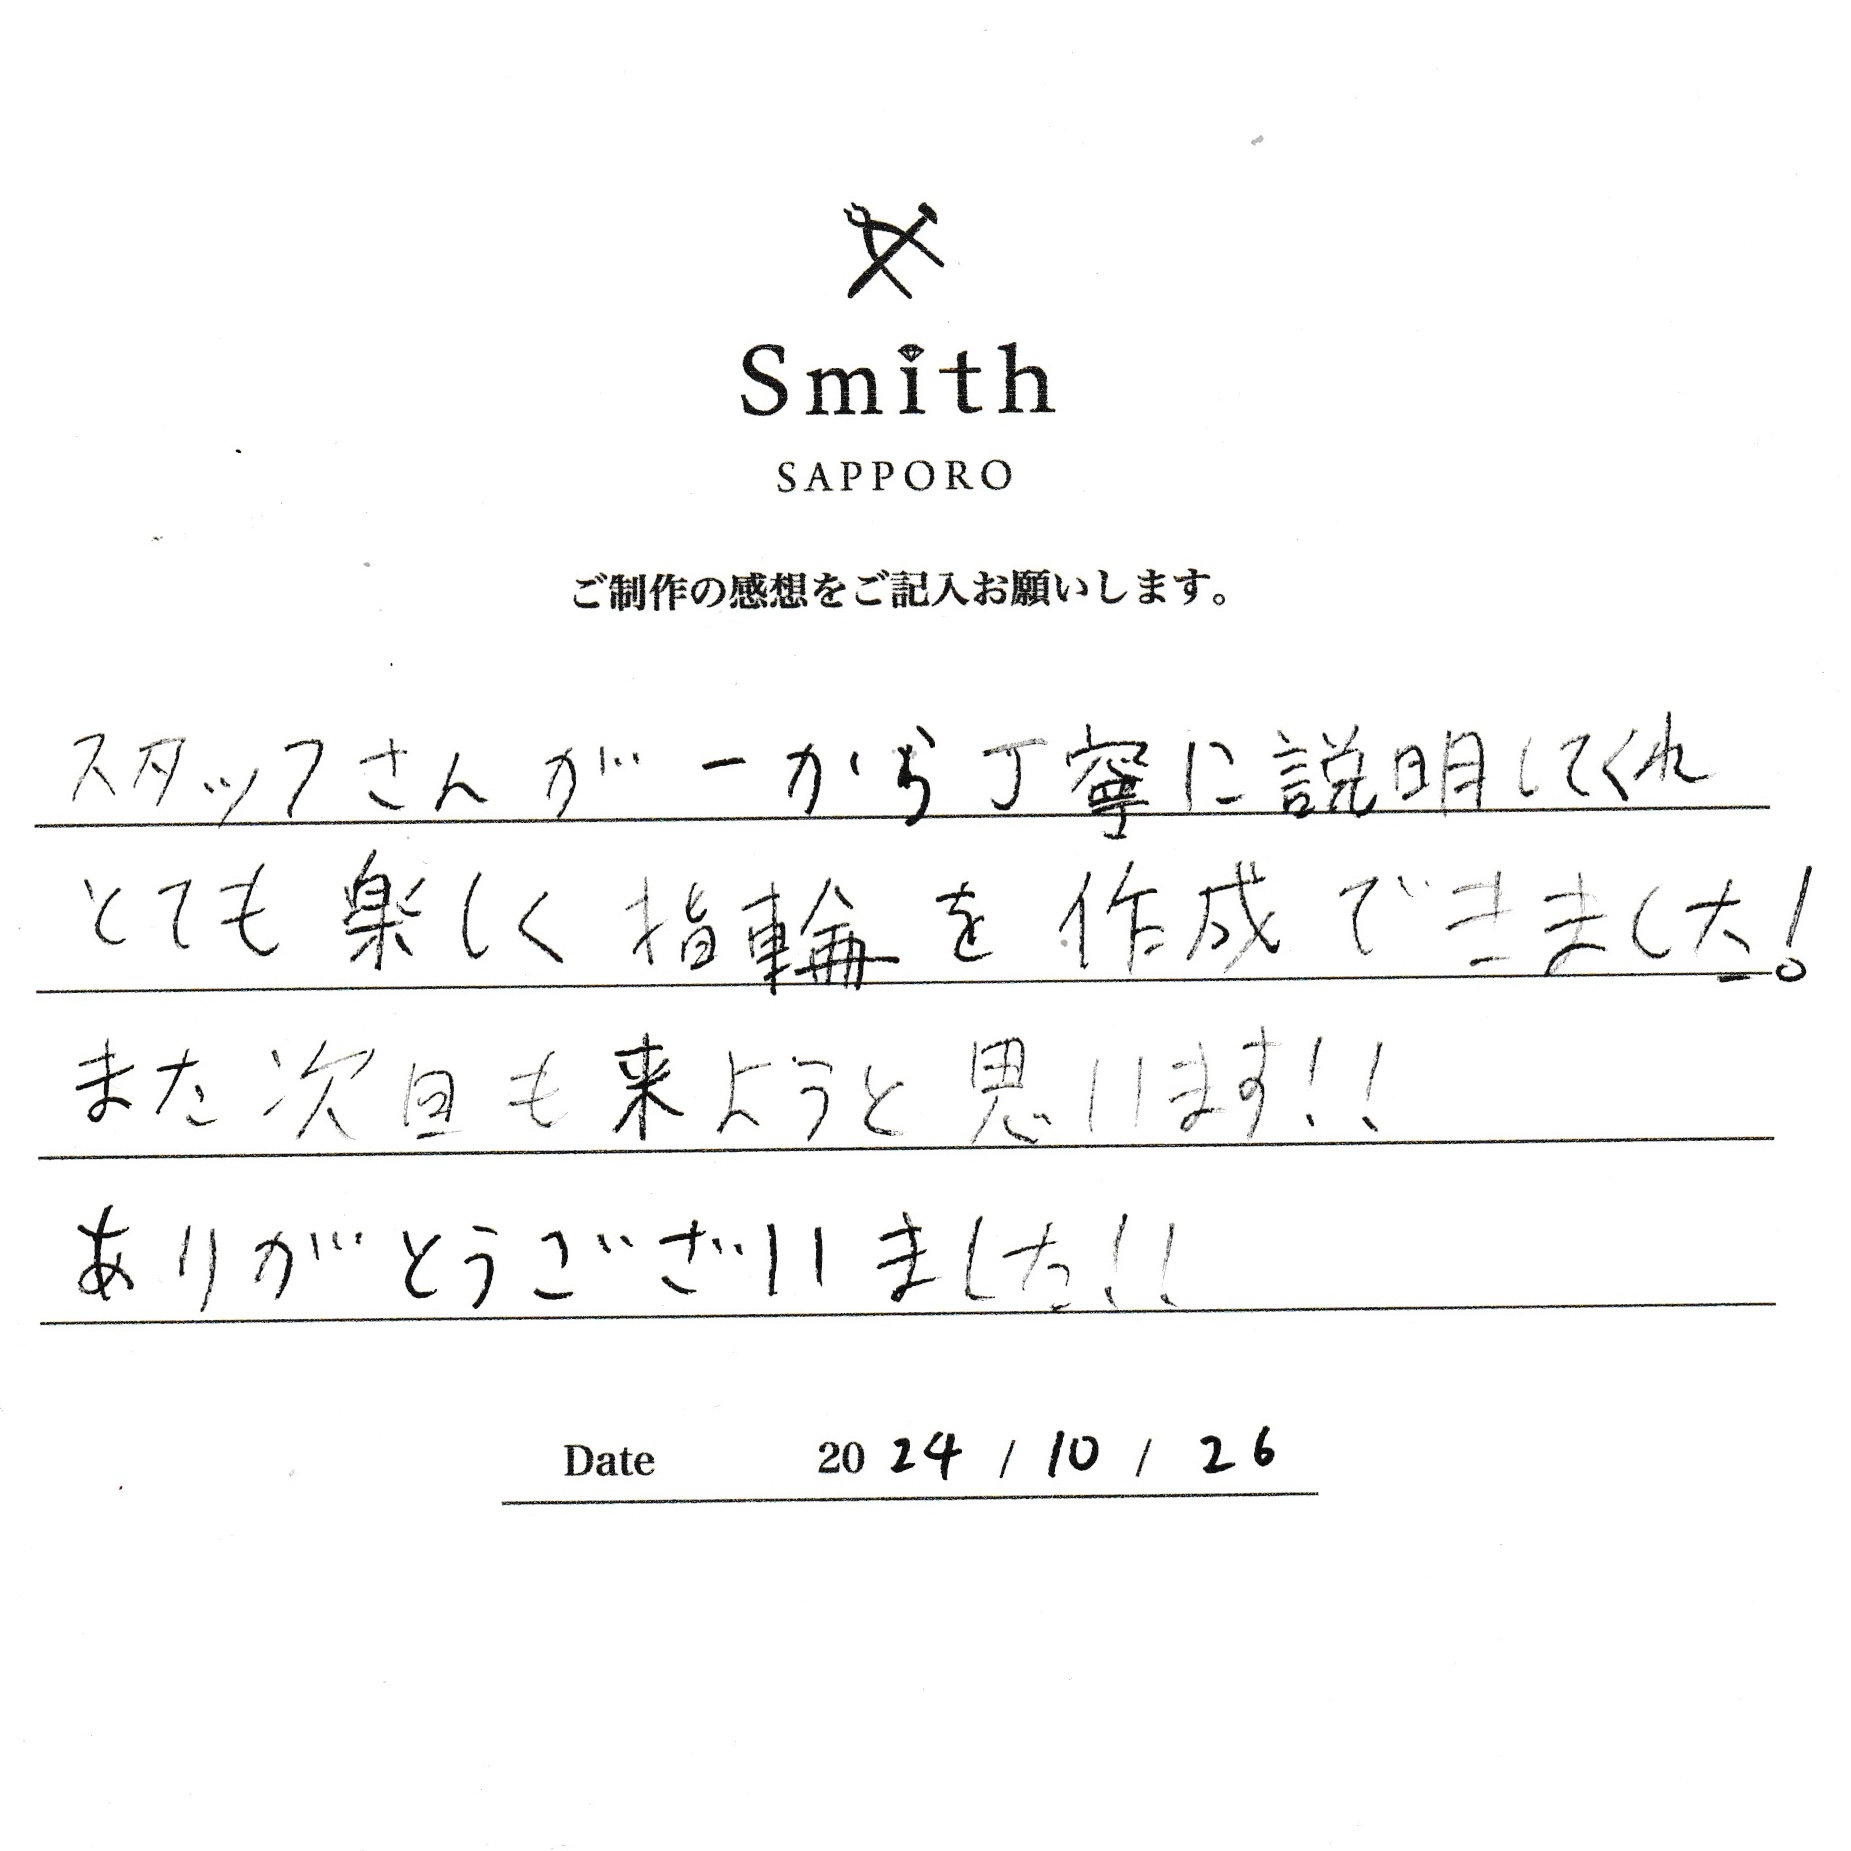 Smith
SAPPORO
ご制作の感想をご記入お願いします。
スタッフさんが一から丁寧に説明してくれ
とても楽しく指輪を作成できました!
また次回も来ようと思います!!
ありがとうございました!!
Date 2024/10/26